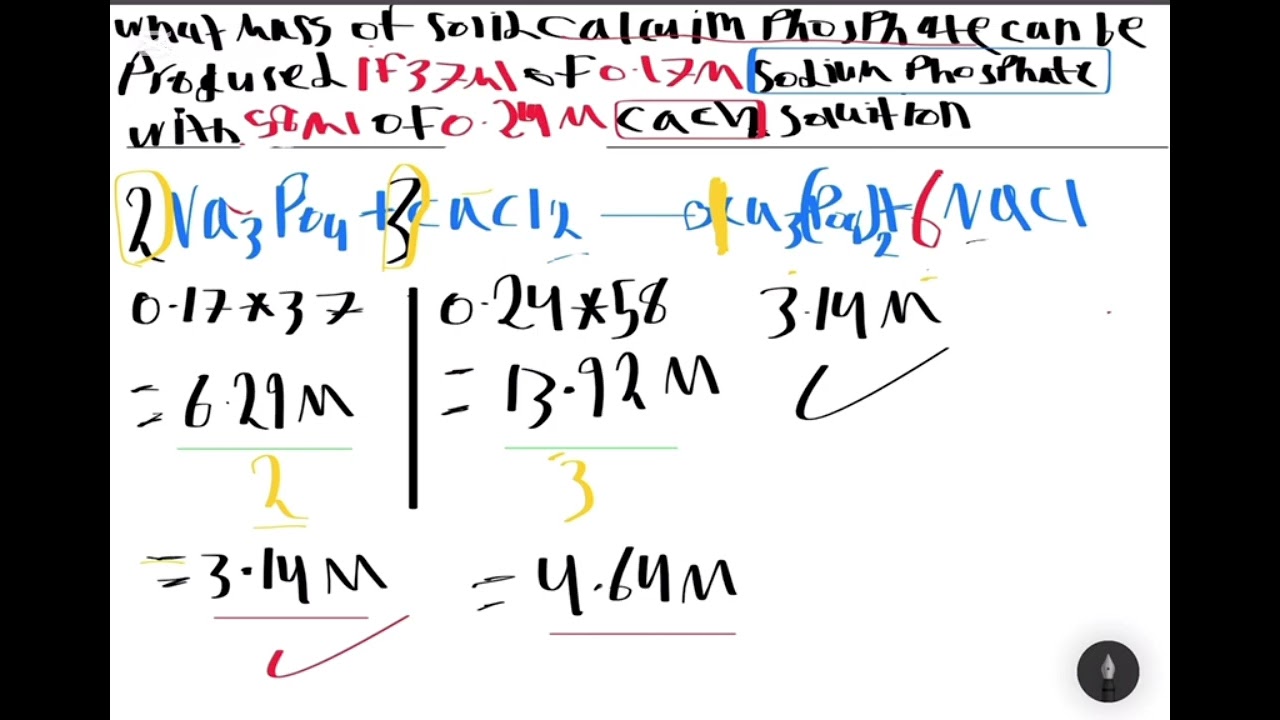 what mass of solid calcuim Phosphate can be
Prodused if 37ml of 0.17M Sodium Phosphate
with 58ml of 0.24M CaCl2 solution
2Na3PO4 + 3CaCl2 → 1Ca3(PO4)2 + 6NaCl
0.17*37 0.24*58 3.14M
= 6.29M = 13.92M
2 3
= 3.14M = 4.64M